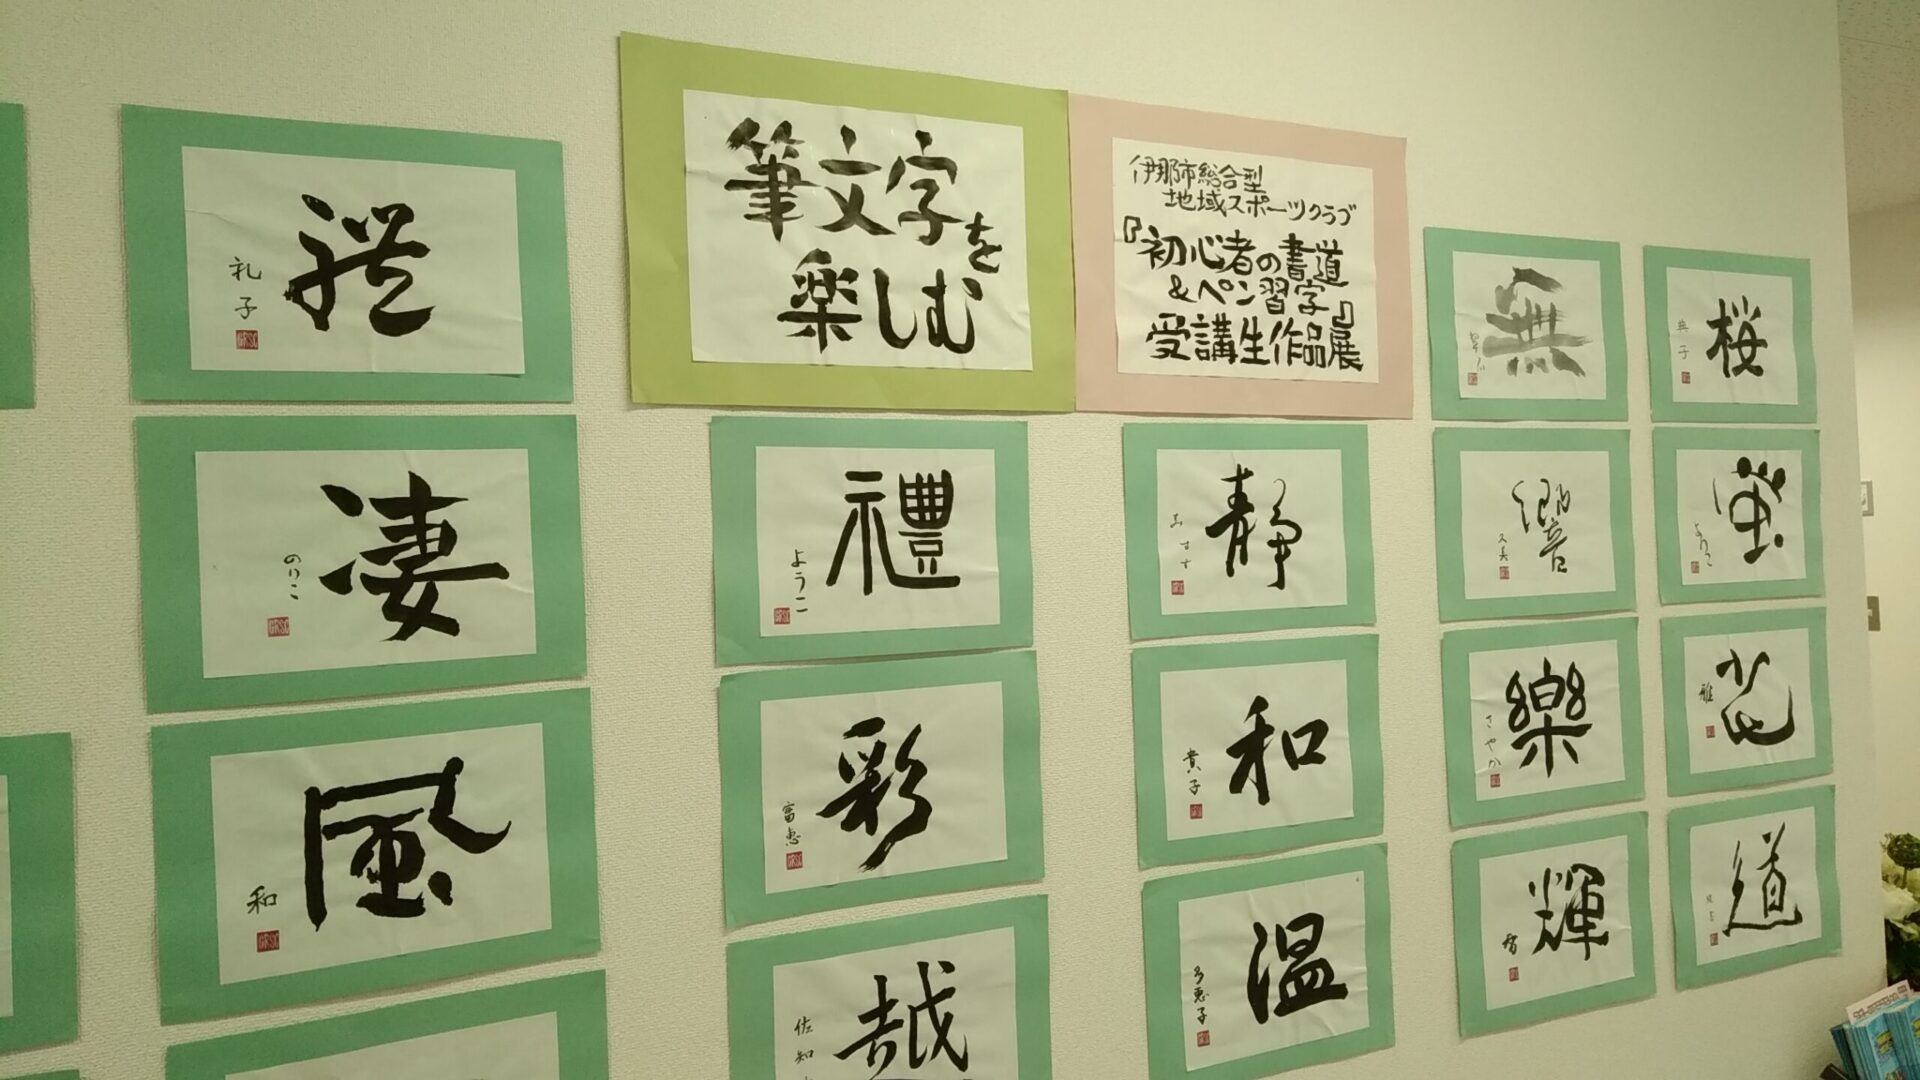 筆文字を
楽しむ
伊那市総合型
地域スポーツクラブ
『初心者の書道
&ペン習字』
受講生作品展
禮
礼子
GRSC
凄
のりこ
GRSC
風
和
GRSC
禮
ようこ
GRSC
彩
富恵
GRSC
越
佐知
静
みすず
和
貴子
温
多恵子
無
響
久美
樂
さやか
輝
智
桜
典子
蛍
花
雅
道